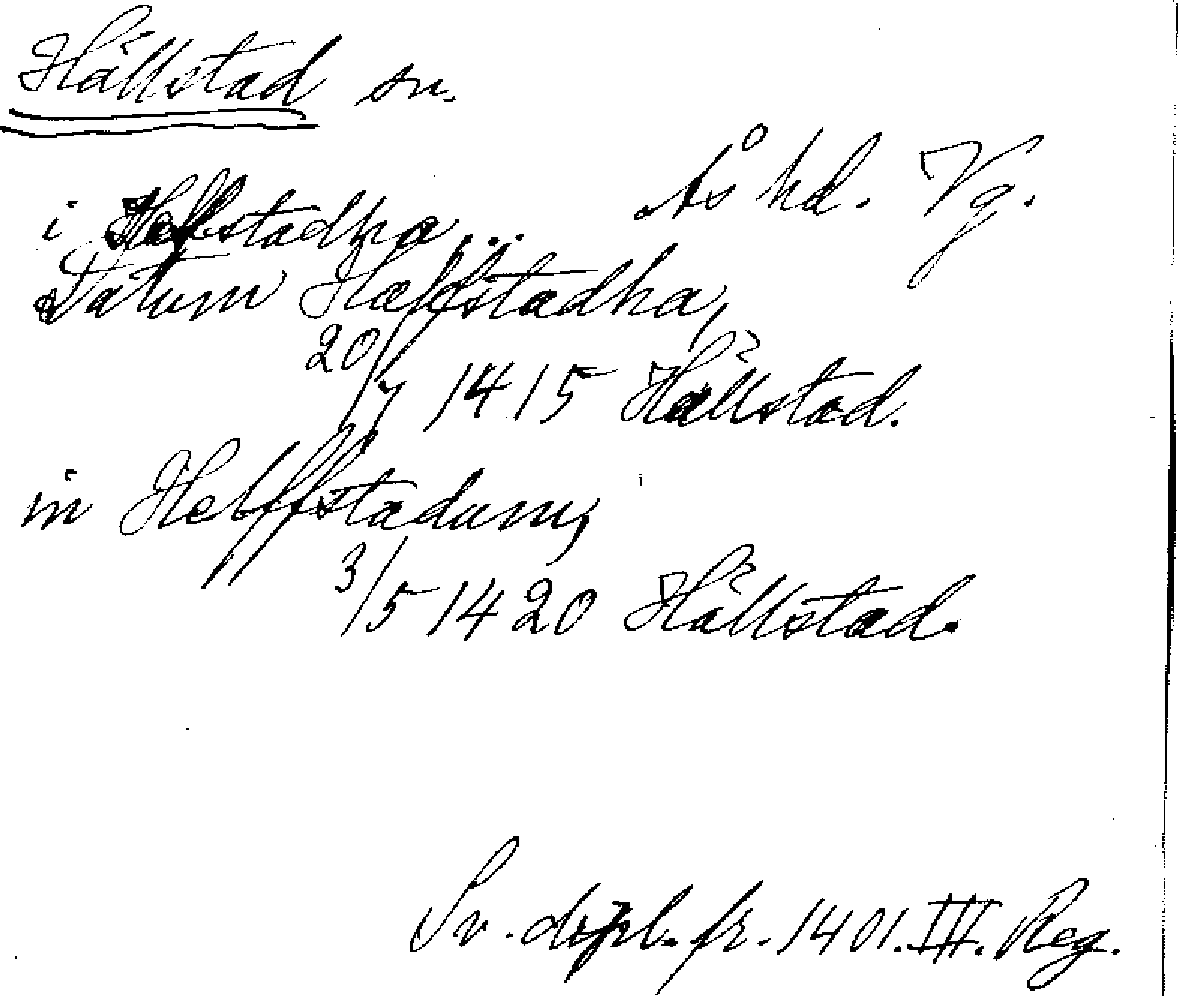 Hällstad sn.
Ås hd. Vg.
i Helfstadha...
Datum Hælfstadha,
20/7 1415 Hällstad.
in Helffstadum,
3/5 1420 Hällstad.
Sv. dipl. fr. 1401. III. Reg.